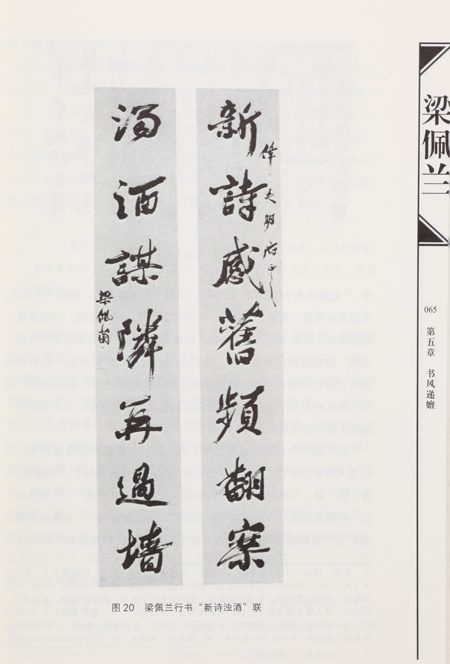 新詩感舊頻翻案
濁酒謀隣再過墻
梁佩蘭
图20 梁佩兰行书“新诗浊酒”联
梁佩兰
065
第五章 书风递嬗